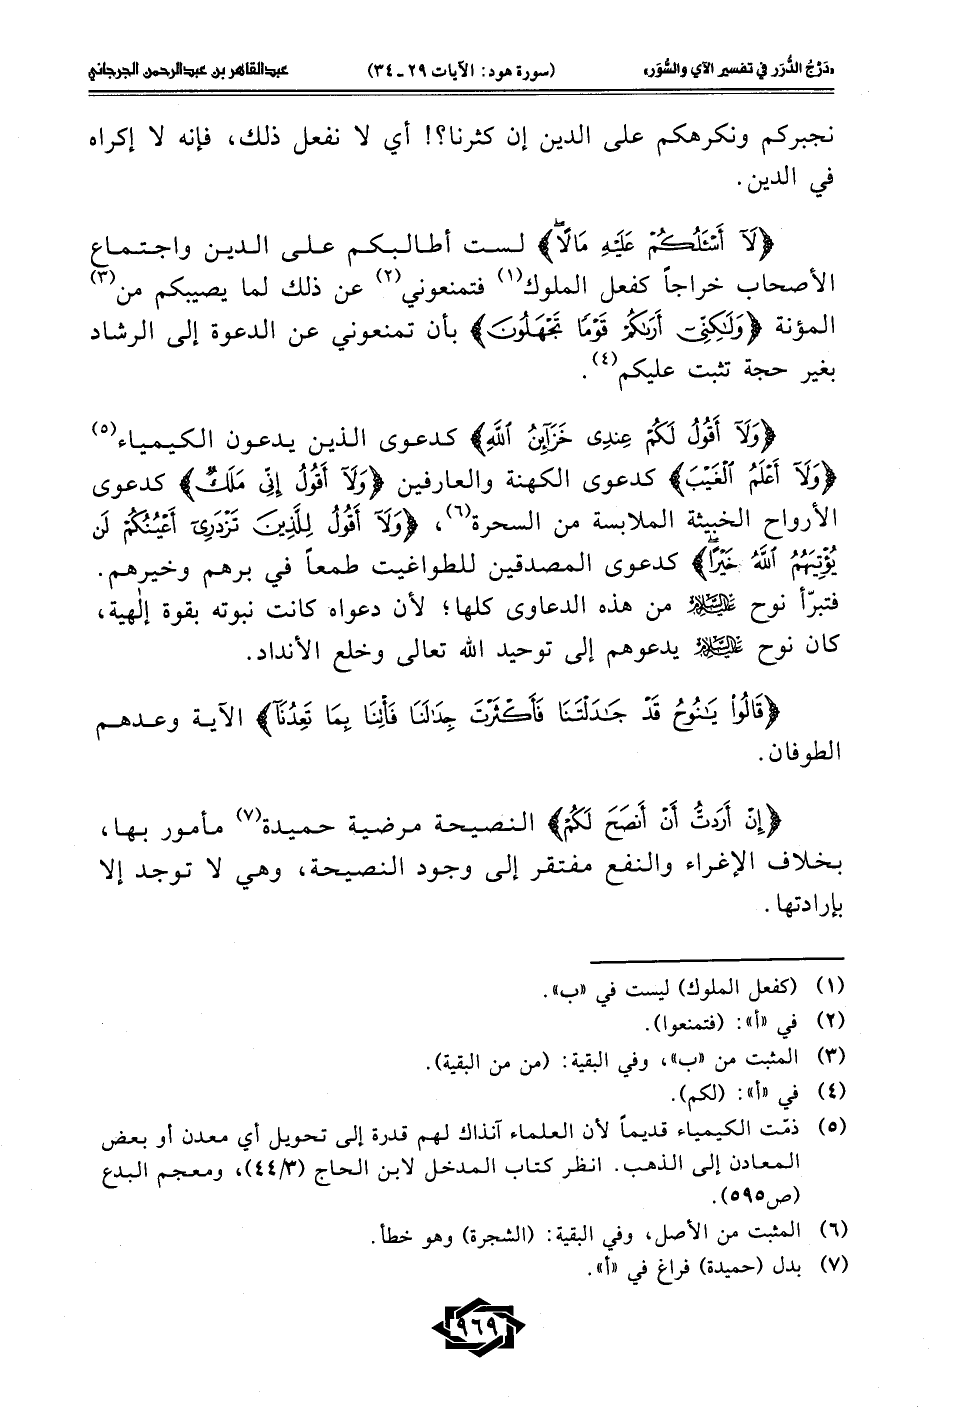 «دَرْجُ الدُّرَر في تفسير الآي والسُّوَر» (سورة هود: الآيات ٢٩ـ٣٤) عبدالقاهر بن عبدالرحمن الجرجاني
نجبركم ونكرهكم على الدين إن كثرنا؟! أي لا نفعل ذلك، فإنه لا إكراه
في الدين.
﴿لَآ أَسْـَٔلُكُمْ عَلَيْهِ مَالًاۖ﴾ لست أطالبكم على الدين واجتماع
الأصحاب خراجاً كفعل الملوك(١) فتمنعوني(٢) عن ذلك لما يصيبكم من(٣)
المؤنة ﴿وَلَٰكِنِّىٓ أَرَىٰكُمْ قَوْمًا تَجْهَلُونَ﴾ بأن تمنعوني عن الدعوة إلى الرشاد
بغير حجة تثبت عليكم(٤).
﴿وَلَآ أَقُولُ لَكُمْ عِندِى خَزَآئِنُ ٱللَّهِ﴾ كدعوى الذين يدعون الكيمياء(٥)
﴿وَلَآ أَعْلَمُ ٱلْغَيْبَ﴾ كدعوى الكهنة والعارفين ﴿وَلَآ أَقُولُ إِنِّى مَلَكٌ﴾ كدعوى
الأرواح الخبيثة الملابسة من السحرة(٦)، ﴿وَلَآ أَقُولُ لِلَّذِينَ تَزْدَرِىٓ أَعْيُنُكُمْ لَن
يُؤْتِيَهُمُ ٱللَّهُ خَيْرًاۖ﴾ كدعوى المصدقين للطواغيت طمعاً في برهم وخيرهم.
فتبرّأ نوح عليه السلام من هذه الدعاوى كلها؛ لأن دعواه كانت نبوته بقوة إلٰهية،
كان نوح عليه السلام يدعوهم إلى توحيد الله تعالى وخلع الأنداد.
﴿قَالُوا۟ يَٰنُوحُ قَدْ جَٰدَلْتَنَا فَأَكْثَرْتَ جِدَٰلَنَا فَأْتِنَا بِمَا تَعِدُنَآ﴾ الآية وعدهم
الطوفان.
﴿إِنْ أَرَدتُّ أَنْ أَنصَحَ لَكُمْ﴾ النصيحة مرضية حميدة(٧) مأمور بها،
بخلاف الإغراء والنفع مفتقر إلى وجود النصيحة، وهي لا توجد إلا
بإرادتها.
(١) (كفعل الملوك) ليست في «ب».
(٢) في «أ»: (فتمنعوا).
(٣) المثبت من «ب»، وفي البقية: (من من البقية).
(٤) في «أ»: (لكم).
(٥) ذمّت الكيمياء قديماً لأن العلماء آنذاك لهم قدرة إلى تحويل أي معدن أو بعض
المعادن إلى الذهب. انظر كتاب المدخل لابن الحاج (٤٤/٣)، ومعجم البدع
(ص٥٩٥).
(٦) المثبت من الأصل، وفي البقية: (الشجرة) وهو خطأ.
(٧) بدل (حميدة) فراغ في «أ».
٩٦٩